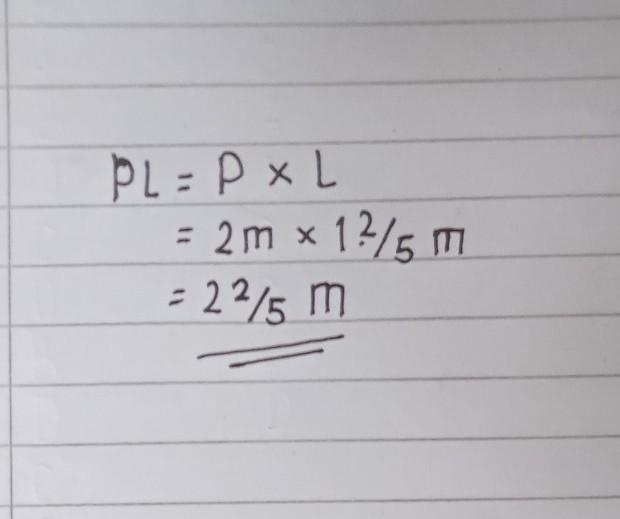 PL = P × L
= 2m × 1 2/5 m
= 2 2/5 m